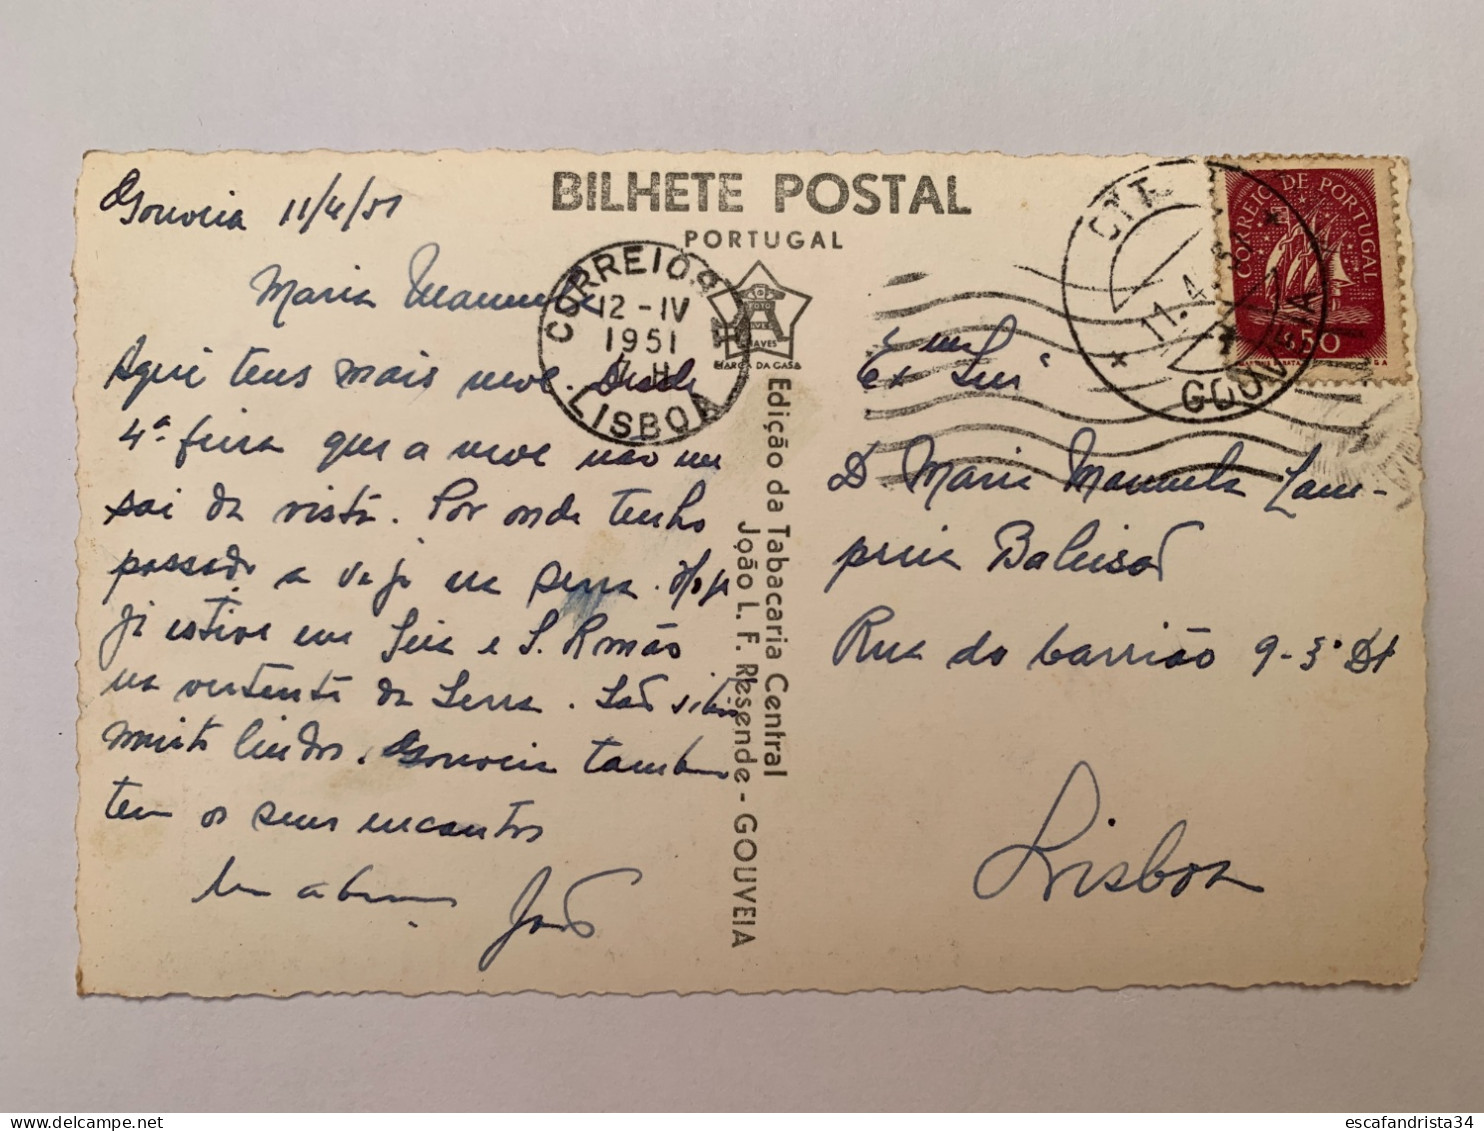 Gouveia 11/4/51
Maria Manuela
Aqui tens mais neve. Desde
4ª feira que a neve não me
sai da vista. Por onde tenho
passado a vejo na serra. Hoje
já estive em Seia e S. Romão
na vertente da Serra. São sitios
muito lindos. Gouveia tambem
tem os seus encantos
Um abraço
João
BILHETE POSTAL
PORTUGAL
FOTO
CHAVES
MARCA DA CASA
CORREIOS
12-IV
1951
LISBOA
Edição da Tabacaria Central
João L. F. Resende - GOUVEIA
CTT
11.4.51
GOUVEIA
CORREIO DE PORTUGAL
$50
Exma Snrª
D Maria Manuela Lam-
preia Baleisão
Rua do barrião 9-3º Dt
Lisboa
delcampe.net
escafandrista34